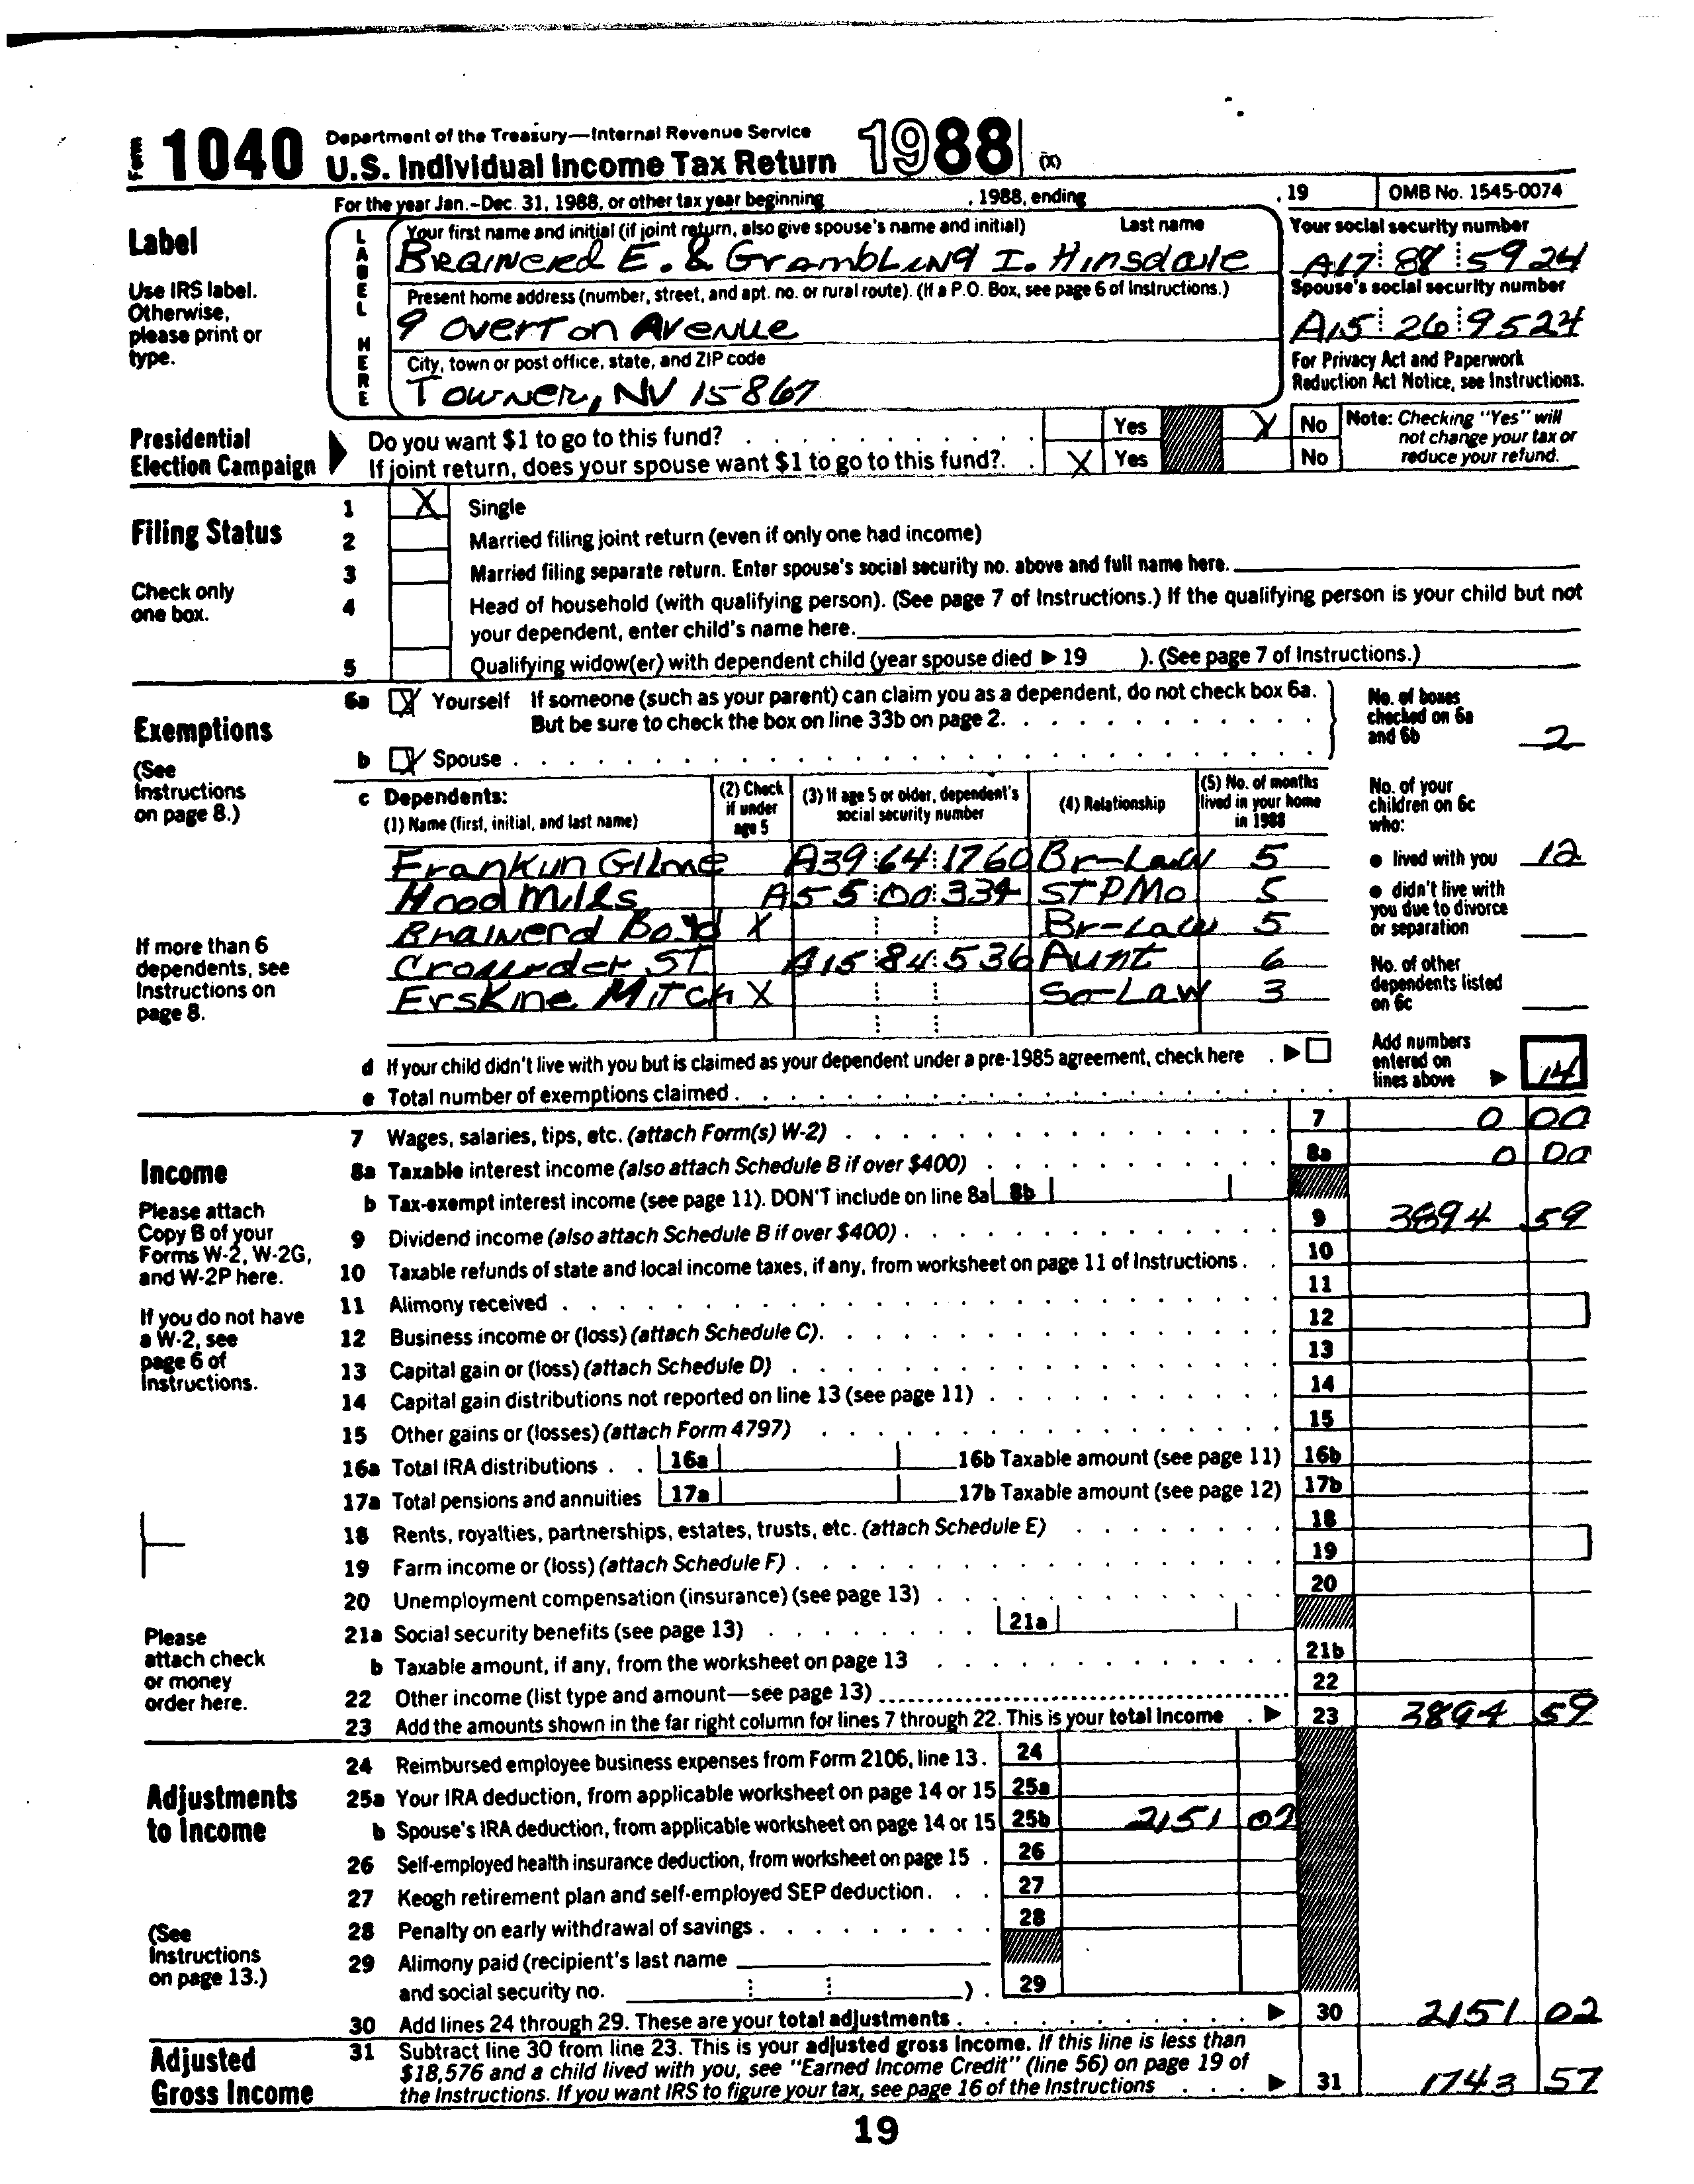 Form 1040 Department of the Treasury—Internal Revenue Service
U.S. Individual Income Tax Return 1988 (X)
For the year Jan.-Dec. 31, 1988, or other tax year beginning , 1988, ending , 19 OMB No. 1545-0074
Label
Use IRS label. Otherwise, please print or type.
LABEL HERE
Your first name and initial (if joint return, also give spouse's name and initial) Last name
Brainerd E. & Grambling I. Hinsdale
Your social security number
A17 88 5924
Present home address (number, street, and apt. no. or rural route). (If a P.O. Box, see page 6 of Instructions.)
9 Overton Avenue
Spouse's social security number
A15 26 9524
City, town or post office, state, and ZIP code
Towner, NV 15867
For Privacy Act and Paperwork Reduction Act Notice, see Instructions.
Presidential Election Campaign
Do you want $1 to go to this fund? Yes X No
If joint return, does your spouse want $1 to go to this fund? X Yes No
Note: Checking "Yes" will not change your tax or reduce your refund.
Filing Status
Check only one box.
1 X Single
2 Married filing joint return (even if only one had income)
3 Married filing separate return. Enter spouse's social security no. above and full name here.
4 Head of household (with qualifying person). (See page 7 of Instructions.) If the qualifying person is your child but not
your dependent, enter child's name here.
5 Qualifying widow(er) with dependent child (year spouse died ▶ 19 ). (See page 7 of Instructions.)
Exemptions
(See Instructions on page 8.)
6a X Yourself If someone (such as your parent) can claim you as a dependent, do not check box 6a.
But be sure to check the box on line 33b on page 2.
b X Spouse
No. of boxes checked on 6a and 6b 2
c Dependents:
(1) Name (first, initial, and last name) (2) Check if under age 5 (3) If age 5 or older, dependent's social security number (4) Relationship (5) No. of months lived in your home in 1988
Gilme A39 64 1760 Br-Law 5
Hood Mills A55 00 334 STPMo 5
Brainerd Boyd X Br-Law 5
ST A15 84 536 Aunt 6
Erskine Mitch X So-Law 3
If more than 6 dependents, see Instructions on page 8.
No. of your children on 6c who:
● lived with you 12
● didn't live with you due to divorce or separation
No. of other dependents listed on 6c
d If your child didn't live with you but is claimed as your dependent under a pre-1985 agreement, check here ▶
e Total number of exemptions claimed
Add numbers entered on lines above ▶ 14
Income
Please attach Copy B of your Forms W-2, W-2G, and W-2P here.
If you do not have a W-2, see page 6 of Instructions.
Please attach check or money order here.
7 Wages, salaries, tips, etc. (attach Form(s) W-2) 7 0 00
8a Taxable interest income (also attach Schedule B if over $400) 8a 0 00
b Tax-exempt interest income (see page 11). DON'T include on line 8a 8b
9 Dividend income (also attach Schedule B if over $400) 9 3894 59
10 Taxable refunds of state and local income taxes, if any, from worksheet on page 11 of Instructions 10
11 Alimony received 11
12 Business income or (loss) (attach Schedule C) 12
13 Capital gain or (loss) (attach Schedule D) 13
14 Capital gain distributions not reported on line 13 (see page 11) 14
15 Other gains or (losses) (attach Form 4797) 15
16a Total IRA distributions 16a 16b Taxable amount (see page 11) 16b
17a Total pensions and annuities 17a 17b Taxable amount (see page 12) 17b
18 Rents, royalties, partnerships, estates, trusts, etc. (attach Schedule E) 18
19 Farm income or (loss) (attach Schedule F) 19
20 Unemployment compensation (insurance) (see page 13) 20
21a Social security benefits (see page 13) 21a
b Taxable amount, if any, from the worksheet on page 13 21b
22 Other income (list type and amount—see page 13) 22
23 Add the amounts shown in the far right column for lines 7 through 22. This is your total income ▶ 23 3894 59
Adjustments to Income
(See Instructions on page 13.)
24 Reimbursed employee business expenses from Form 2106, line 13. 24
25a Your IRA deduction, from applicable worksheet on page 14 or 15 25a
b Spouse's IRA deduction, from applicable worksheet on page 14 or 15 25b 2151 02
26 Self-employed health insurance deduction, from worksheet on page 15 26
27 Keogh retirement plan and self-employed SEP deduction 27
28 Penalty on early withdrawal of savings 28
29 Alimony paid (recipient's last name
and social security no. ) 29
30 Add lines 24 through 29. These are your total adjustments ▶ 30 2151 02
Adjusted Gross Income
31 Subtract line 30 from line 23. This is your adjusted gross income. If this line is less than
$18,576 and a child lived with you, see "Earned Income Credit" (line 56) on page 19 of
the Instructions. If you want IRS to figure your tax, see page 16 of the Instructions ▶ 31 1743 57
19